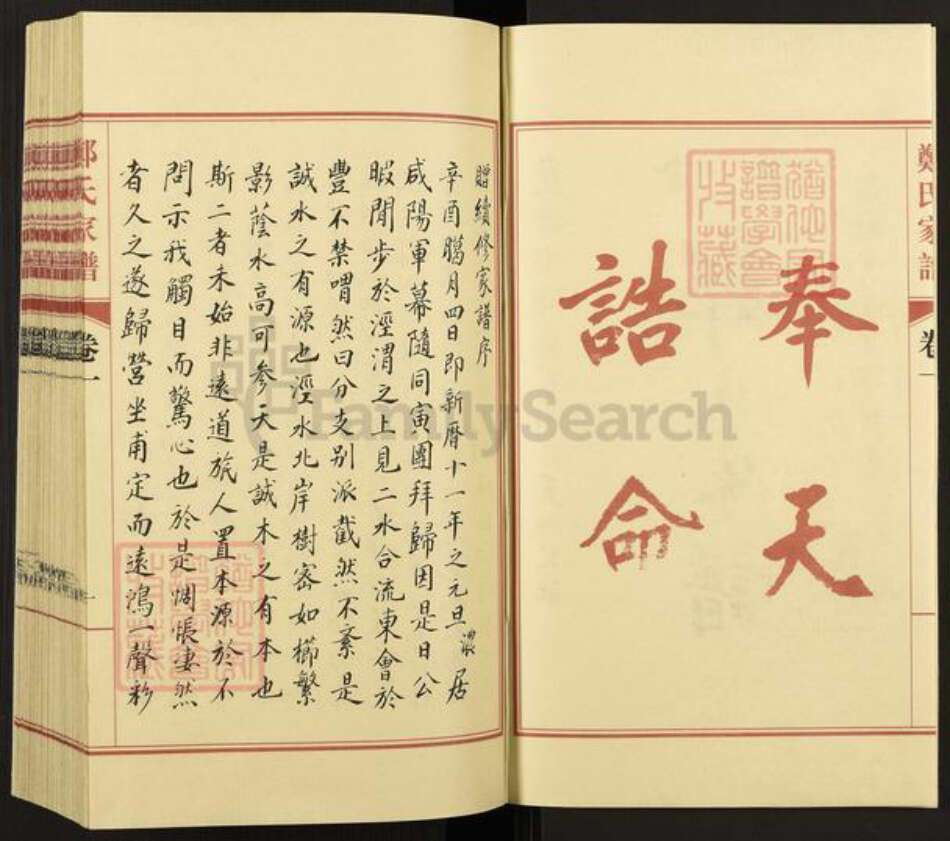 鄭氏家譜
卷一
奉天
誥命
贈續修家譜序
辛酉臈月四日即新曆十一年之元旦澂居
咸陽軍幕隨同寅團拜歸因是日公
暇閒步於涇渭之上見二水合流東會於
豐不禁喟然曰分支别派截然不紊是
誠水之有源也涇水北岸樹密如櫛繁
影蔭水高可參天是誠木之有本也
斯二者未始非遠道旅人置本源於不
問示我觸目而驚心也於是惆悵凄然
者久之遂歸營坐甫定而遠鴻一聲彩
鄭氏家譜
卷一
譜學會
收藏
FamilySearch